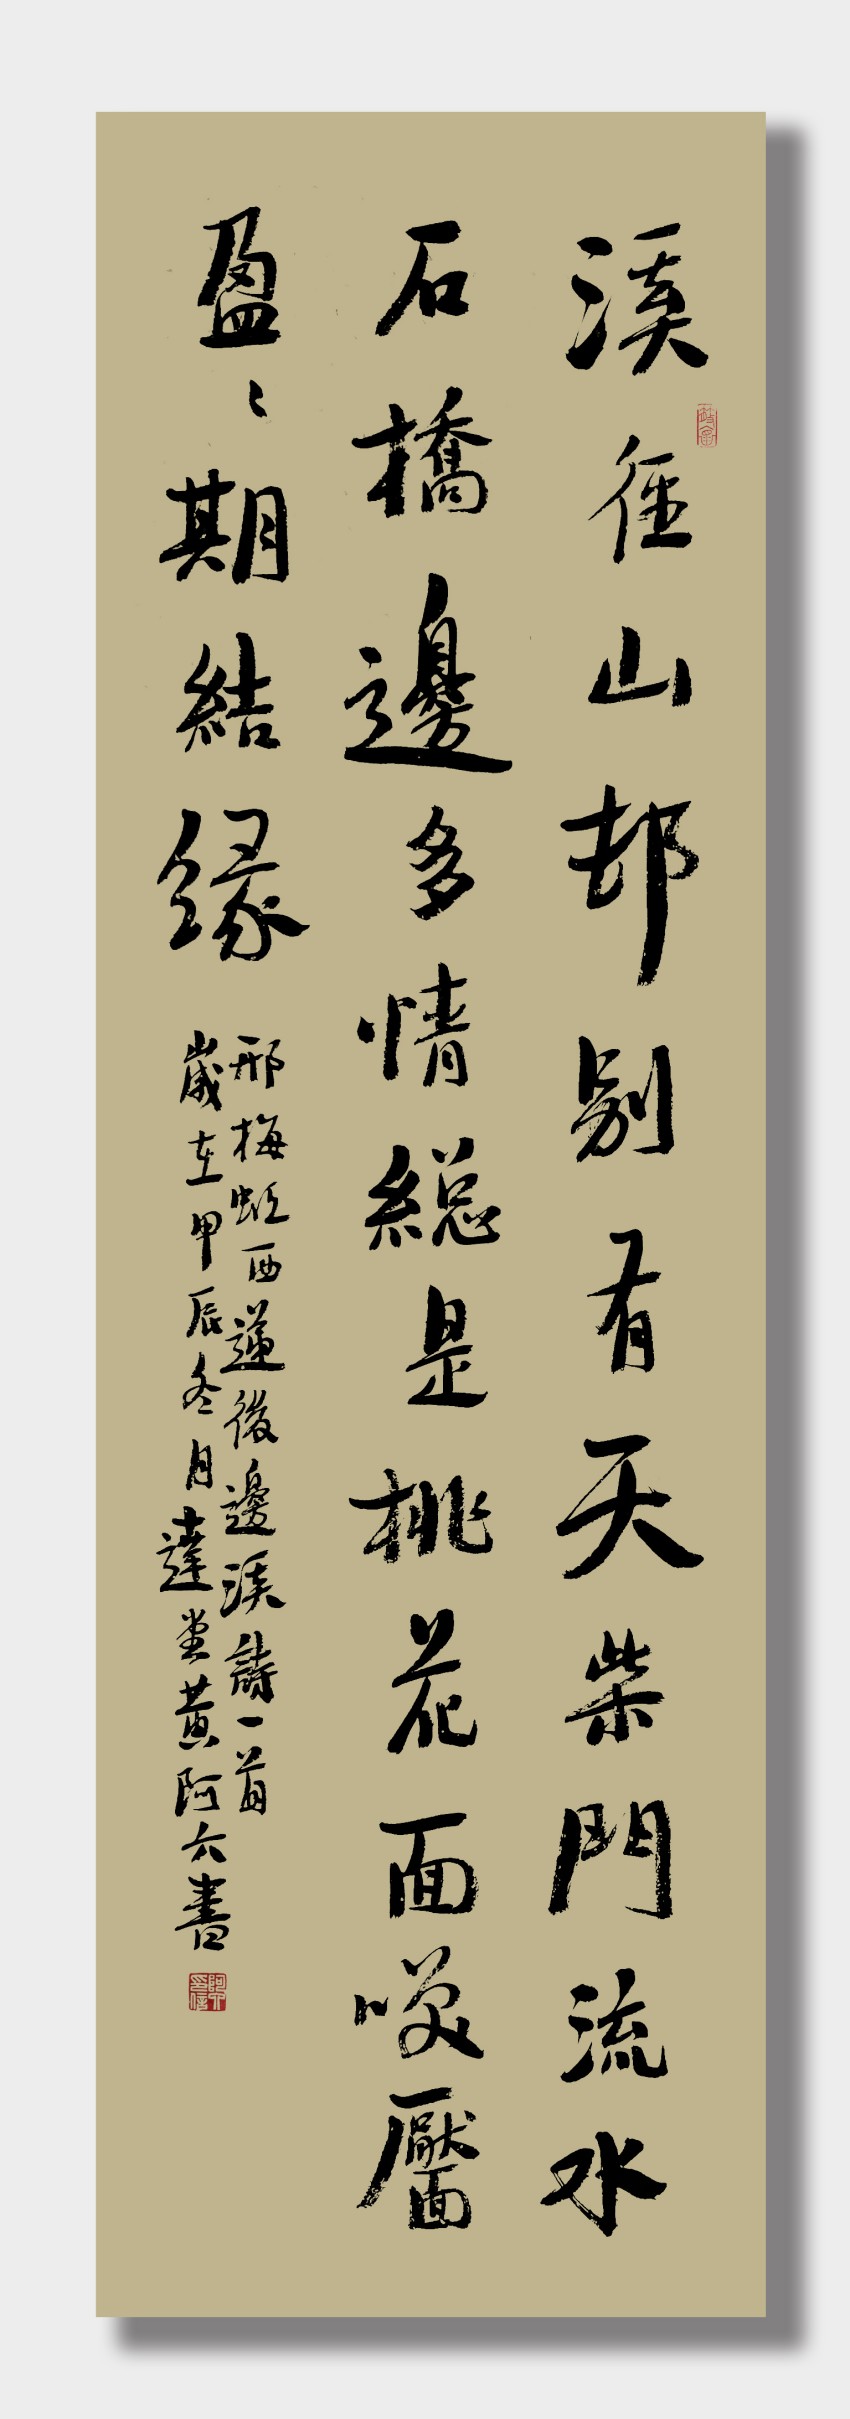 溪径山邨别有天柴門流水
石橋邊多情縂是桃花面咲靨
盈〻期結緣
邢梅蚯西蓮後邊溪詩一首
歲在甲辰冬月達堂黄阿六書